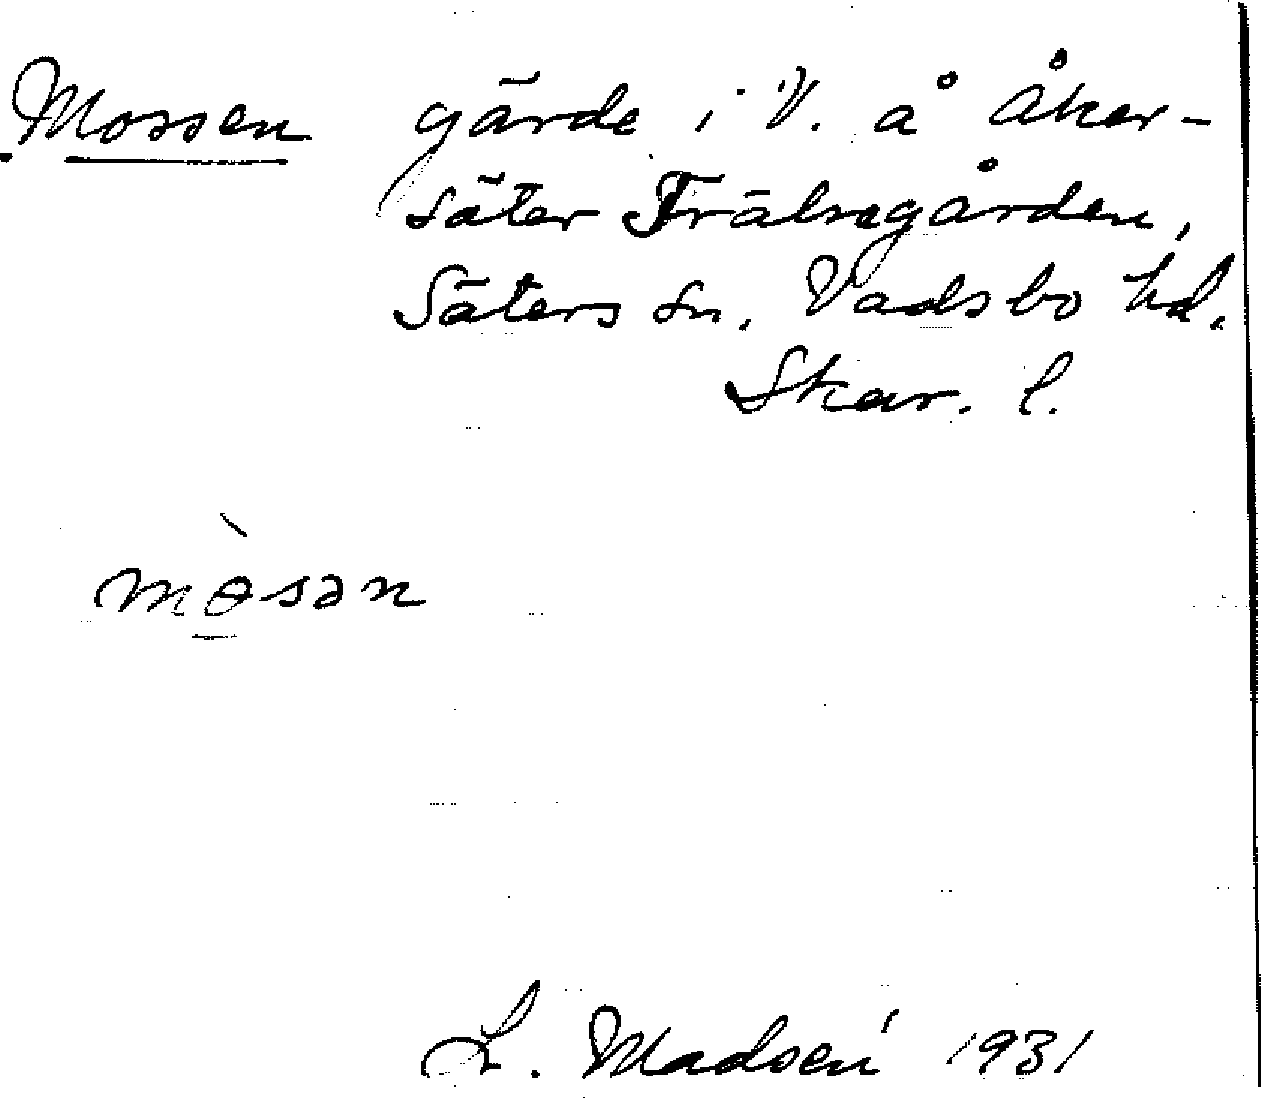 Mossen gärde i V. å Åker-
säter Frälsegården,
Säters sn. Vadsbo hd.
Skar. l.
mɵ̀sən
L. Madsén 1931